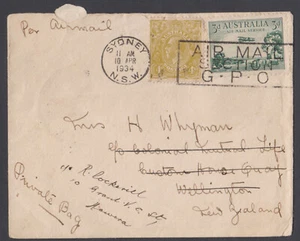 Per Airmail
SYDNEY
11 AM
10 APR
1934
N.S.W.
AIR MAIL
SECTION
G.P.O
3d AUSTRALIA 3d
AIR MAIL SERVICE
H Whyman
c/o Colonial Mutual Life
Custom House Quay
Wellington
New Zealand
c/o R.
10 Grant
Private Bag